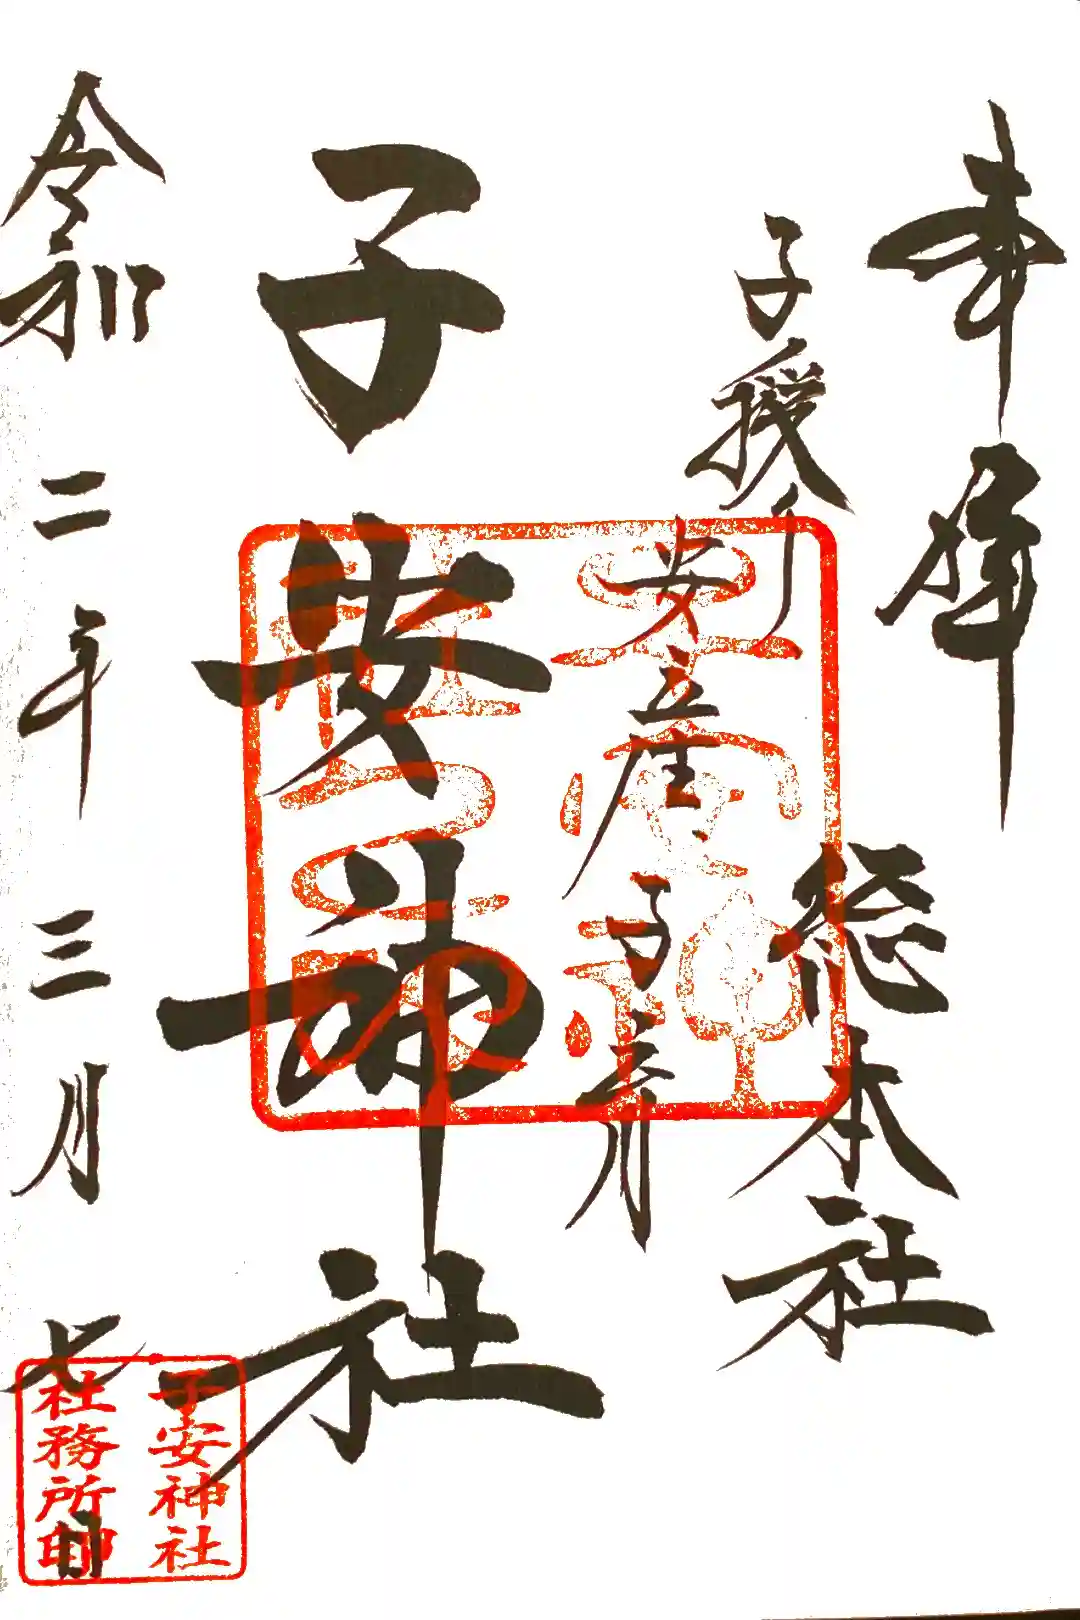 奉拝
総本社
子授け
安産
子育
子安神社
令和二年三月七日
子安神社
社務所印